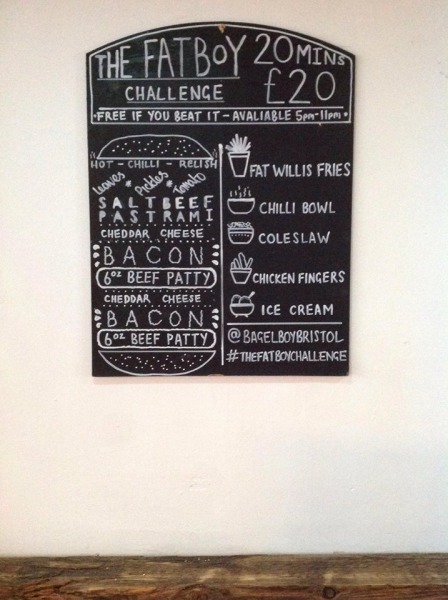 THE FATBOY
CHALLENGE
20 MINS
£20
•FREE IF YOU BEAT IT - AVALIABLE 5pm-11pm•
HOT - CHILLI - RELISH
Leaves * Pickles * Tomato
SALTBEEF
PASTRAMI
CHEDDAR CHEESE
BACON
6oz BEEF PATTY
CHEDDAR CHEESE
BACON
6oz BEEF PATTY
FAT WILLIS FRIES
CHILLI BOWL
COLESLAW
CHICKEN FINGERS
ICE CREAM
@BAGELBOYBRISTOL
#THEFATBOYCHALLENGE